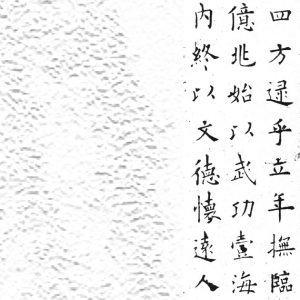 四方逮乎立年撫臨
億兆始以武功壹海
內終以文德懷遠人